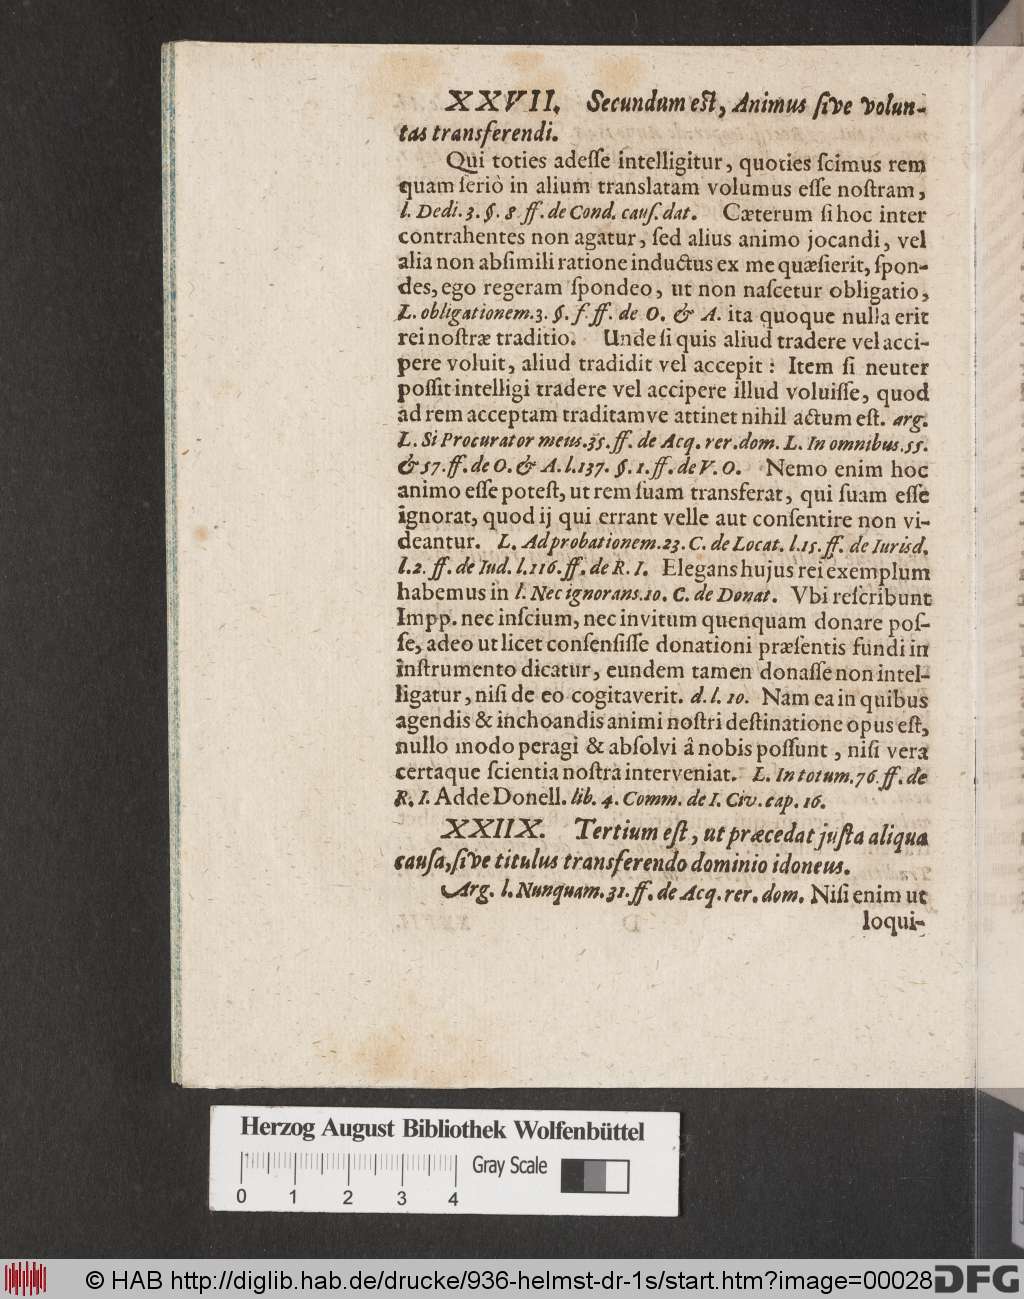 XXVII. Secundum est, Animus ſive volun-
tas transferendi.
Qui toties adeſſe intelligitur, quoties ſcimus rem
quam ſeriò in alium translatam volumus eſſe noſtram,
l. Dedi. 3. §. 8 ff. de Cond. cauſ. dat. Cæterum ſi hoc inter
contrahentes non agatur, ſed alius animo jocandi, vel
alia non abſimili ratione inductus ex me quæſierit, ſpon-
des, ego regeram ſpondeo, ut non naſcetur obligatio,
L. obligationem. 3. §. f. ff. de O. & A. ita quoque nulla erit
rei noſtræ traditio. Unde ſi quis aliud tradere vel acci-
pere voluit, aliud tradidit vel accepit: Item ſi neuter
poſſit intelligi tradere vel accipere illud voluiſſe, quod
ad rem acceptam traditamve attinet nihil actum eſt. arg.
L. Si Procurator meus. 35. ff. de Acq. rer. dom. L. In omnibus. 55.
& 57. ff. de O. & A. l. 137. §. 1. ff. de V. O. Nemo enim hoc
animo eſſe poteſt, ut rem ſuam transferat, qui ſuam eſſe
ignorat, quod ij qui errant velle aut conſentire non vi-
deantur. L. Adprobationem. 23. C. de Locat. l. 15. ff. de Iurisd.
l. 2. ff. de Iud. l. 116. ff. de R. I. Elegans hujus rei exemplum
habemus in l. Nec ignorans. 10. C. de Donat. Vbi reſcribunt
Impp. nec inſcium, nec invitum quenquam donare poſ-
ſe, adeo ut licet conſenſiſſe donationi præſentis fundi in
inſtrumento dicatur, eundem tamen donaſſe non intel-
ligatur, niſi de eo cogitaverit. d. l. 10. Nam ea in quibus
agendis & inchoandis animi noſtri deſtinatione opus eſt,
nullo modo peragi & abſolvi â nobis poſſunt, niſi vera
certaque ſcientia noſtra interveniat. L. In totum. 76. ff. de
R. I. Adde Donell. lib. 4. Comm. de I. Civ. cap. 16.
XXIIX. Tertium eſt, ut præcedat juſta aliqua
cauſa, ſive titulus transferendo dominio idoneus.
Arg. l. Nunquam. 31. ff. de Acq. rer. dom. Niſi enim ut
loqui-
Herzog August Bibliothek Wolfenbüttel
Gray Scale
0 1 2 3 4
© HAB http://diglib.hab.de/drucke/936-helmst-dr-1s/start.htm?image=00028
DFG